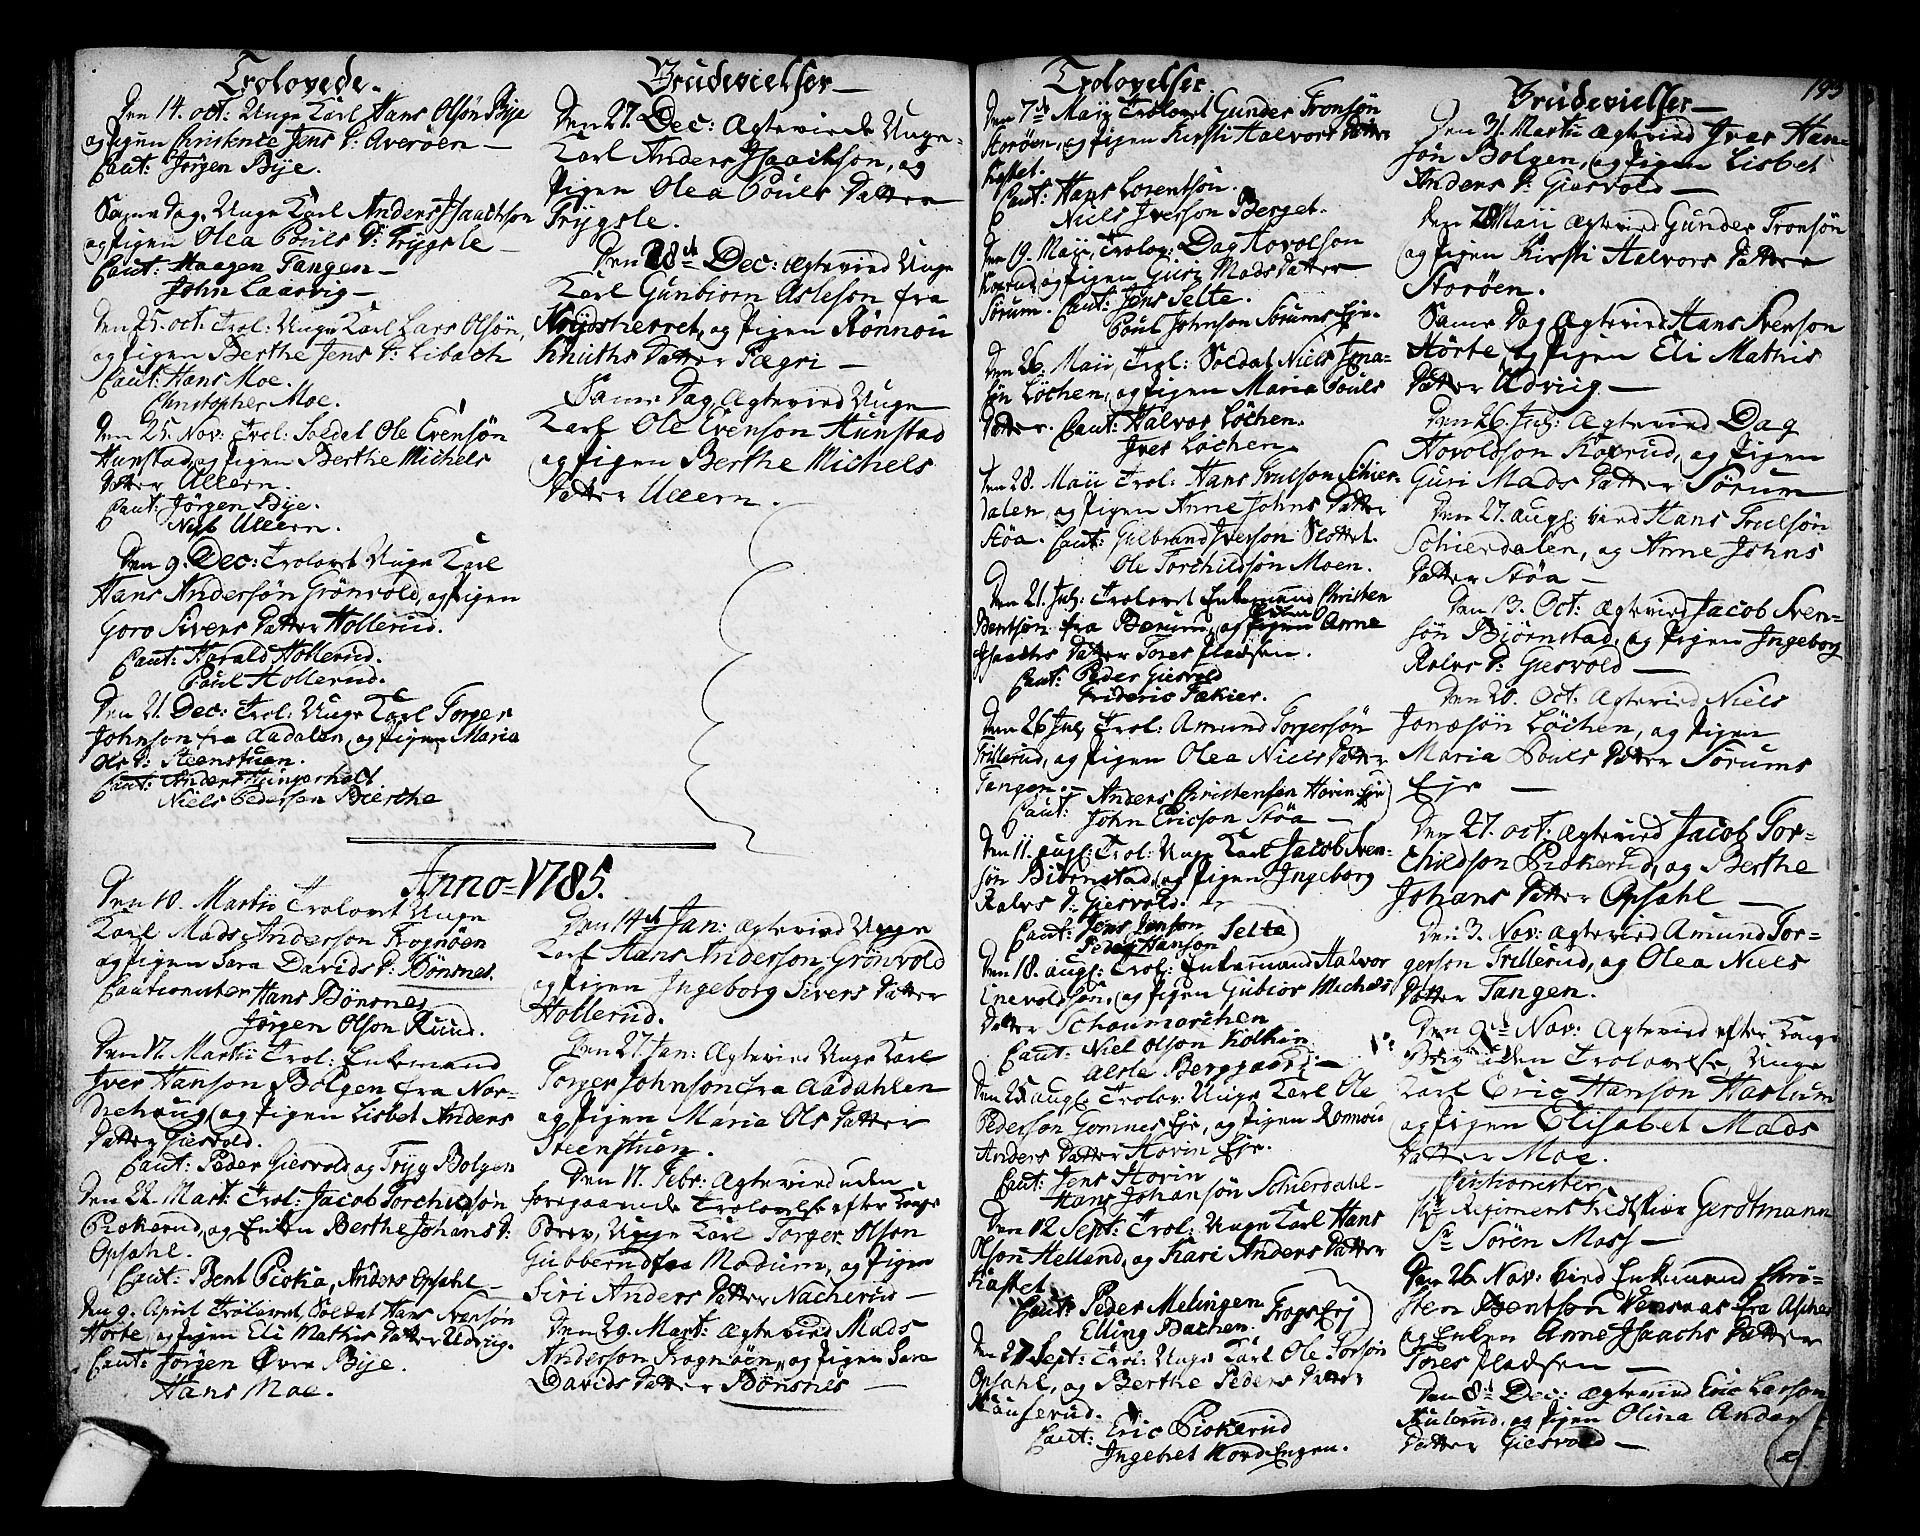 Trolovede.
Den 14. oct: Unge Karl Hans Olsøn Bije
og Pigen Christence Jens D: Averøen —
Caut: Jørgen Bije.
Same Dag, Unge Karl Anders Isaachson
og Pigen Olea Pouls D: Trygsle —
Caut: Haagen Tangen —
John Laarvig —
Den 25. oct: Trol: Unge Karl Lars Olsøn,
og Pigen Berthe Jens D: Libach
Caut: Hans Moe.
Christopher Moe.
Den 25. Nov: Trol: Soldat Ole Evensøn
Hunstad, og Pigen Berthe Michels
Datter Ullern.
Caut: Jørgen Bije.
Niels Ullern.
Den 9. Dec: Trolovet Unge Karl
Hans Andersøn Grönvold, og Pigen
Goro Sivers Datter Hollerud.
Caut: Harald Hollerud.
Paul Hollerud.
Den 21. Dec: Trol: Unge Karl Torger
Johnson fra Aadalen, og Pigen Maria
Ols D: Steenstuen.
Caut: Anders Hungerholt
Niels Pedersen Bierche
Anno = 1785.
Den 10. Martii Trolovet Unge
Karl Mads Anderson Frognøen
og Pigen Sara Davids D: Bönsnes.
Cautionister Hans Bönsnes
Jörgen Olson Ruud.
Den 17. Martii Trol: Enkemand
Iver Hanson Bolgen fra Nor-
drehaug, og Pigen Lisbet Anders
Datter Giesvold.
Caut: Peder Giesvold og Tryg Bolgen
Den 22. Mart: Trol: Jacob Torchildsøn
Piokerud, og Enken Berthe Johans D:
Opsahl.
Caut: Bent Piokia, Anders Opsahl —
Den 9. April Trolovet Soldat Hans Svensøn
Hörte, og Pigen Eli Mathis Datter Udviig.
Caut: Jörgen Øvre Bije.
Hans Moe.
Brudevielser —
Den 27. Dec: Ægteviede Unge-
Karl Anders Isaachson, og
Pigen Olea Pouls Datter
Trygsle.
Den 28de Dec: Ægtevied Unge
Karl Gunbiorn Asleson fra
Næs herret, og Pigen Rönnou
Knuths Datter Fægri —
Same Dag Ægtevied Unge
Karl Ole Evenson Hunstad
og Pigen Berthe Michels
Datter Ullern.
Den 14de Jan: Ægtevied Unge
Karl Hans Anderson Grönvold
og Pigen Ingeborg Sivers Datter
Hollerud.
Den 27. Jan: Ægtevied Unge Karl
Torger Johnson fra Aadahlen
og Pigen Maria Ols Datter
Steenstuen.
Den 17. Febr: Ægtevied uden
foregaaende Trolovelse efter Konge
Brev, Unge Karl Torger Olson
Gubberud fra Modum, og Pigen
Siri Anders Datter Nacherud —
Den 29. Mart: Ægtevied Mads
Anderson Frognöen, og Pigen Sara
Davids Datter Bönsnes —
Trolovelser.
Den 7de Maij Trolovet Gunder Tronsøn
Storøen, og Pigen Kirsti Halvors Datter
Hasset.
Caut: Hans Lorentsøn.
Niels Iverson Berget.
Den 19. Maij Trolov: Dag Hovolson
Koxrud, og Pigen Guri Mads Datter
Sörum. Caut: Jens Selte.
Poul Johnson Sörums Eje.
Den 26. Maii, Trol: Soldat Niels Jona-
søn Löchen, og Pigen Maria Pouls
Datter. Caut: Halvor Löchen.
Iver Löchen
Den 28. Maii Trol: Hans Trulson Schier-
dalen, og Pigen Anne Johns Datter
Stöa. Caut: Gulbrand Iverson Slottet.
Ole Torchildsøn Moen.
Den 21. Julj: Trolovet Enkemand Christen
Bentsøn fra Bærum, og Enken Anne
Isaachs Datter Tores pladsen.
Caut: Peder Giesvold
Frideric Fækier.
Den 26 Julj Trol: Amund Torgersön
Trillerud, og Pigen Olea Niels Datter
Tangen. —
Caut: Anders Christensen Hovin Eje
John Ericson Stöa —
Den 11. aug: Trol: Unge Karl Jacob Sven-
søn Biörnstad, og Pigen Ingeborg
Ralvs D: Giesvold. —
Caut: Jens Jenson
Peder Hanson Selte
Den 18. aug: Trol: Enkemand Halvor
Enevoldsøn, og Pigen Gubior Michels
Datter Schoumarchen
Caut: Niel Olson Kolkin
Alsle Berggaard. —
Den 25 aug: Trolov: Unge Karl Ole
Pederson Gomnes Eje, og Pigen Ronnou
Anders Datter Hovin Eje.
Caut: Jens Hovin
Hans Johansøn Schierdahl —
Den 12 Sept: Trol: Unge Karl Hans
Olson Helland, og Kari Anders Datter
Hasset.
Caut: Peder Melingen
Elling Bachen. Frogs Eje
Den 27 Sept: Trol: Unge Karl Ole Torsøn
Opsahl, og Berthe Peders Datter
Hauserud.
Caut: Eric Piokerud
Ingebret Nord Engen.
Brudevielser —
193
Den 31. Martii Ægtevied Iver Han-
søn Bolgen, og Pigen Lisbet
Anders D: Giesvold —
Den 28 Maii Ægtevied Gunder Tronsøn
og Pigen Kirsti Halvors Datter
Storöen.
Same Dag Ægtevied Hans Svenson
Hörte, og Pigen Eli Mathis
Datter Udviig —
Den 26. Julj: Ægtevied Dag
Hovoldson Koxrud, og Pigen
Guri Mads Datter Sörum
Den 27. aug: vied Hans Trulsøn
Schierdalen, og Anne Johns
Datter Stöa —
Den 13. Oct: Ægtevied Jacob Sven-
søn Björnstad, og Pigen Ingeborg
Ralvs D: Giesvold —
Den 20. Oct: Ægtevied Niels
Jonæsøn Löchen, og Pigen
Maria Pouls Datter Sörums
Eje —
Den 27. oct: Ægtevied Jacob Tor-
childson Piokerud, og Berthe
Johans Datter Opsahl —
Den 3. Nov: Ægtevied Amund Tor-
gerson Trillerud, og Olea Niels
Datter Tangen.
Den 9de Nov: Ægtevied efter Konge
Brev uden Trolovelse, Unge
Karl Eric Hanson Harlum
og Pigen Elisabet Mads
Datter Moe.
Cautionister
Hr Regiments Feldskiær Gerdtmann
Sr Sören Mass —
Den 26. Nov: vied Enkemand Chri-
sten Bentson Vensaas fra Asker
og Enken Anne Isaachs Datter
Tores Pladsen —
Den 8de Dec: Ægtevied Eric Larson
Hulerud, og Pigen Olina Anders
Datter Giesvold —